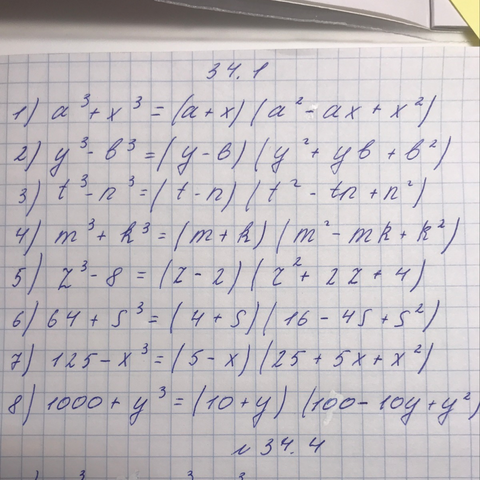 34.1
1) a³ + x³ = (a + x) (a² - ax + x²)
2) y³ - b³ = (y - b) (y² + yb + b²)
3) t³ - n³ = (t - n) (t² - tn + n²)
4) m³ + k³ = (m + k) (m² - mk + k²)
5) z³ - 8 = (z - 2) (z² + 2z + 4)
6) 64 + s³ = (4 + s) (16 - 4s + s²)
7) 125 - x³ = (5 - x) (25 + 5x + x²)
8) 1000 + y³ = (10 + y) (100 - 10y + y²)
34.4